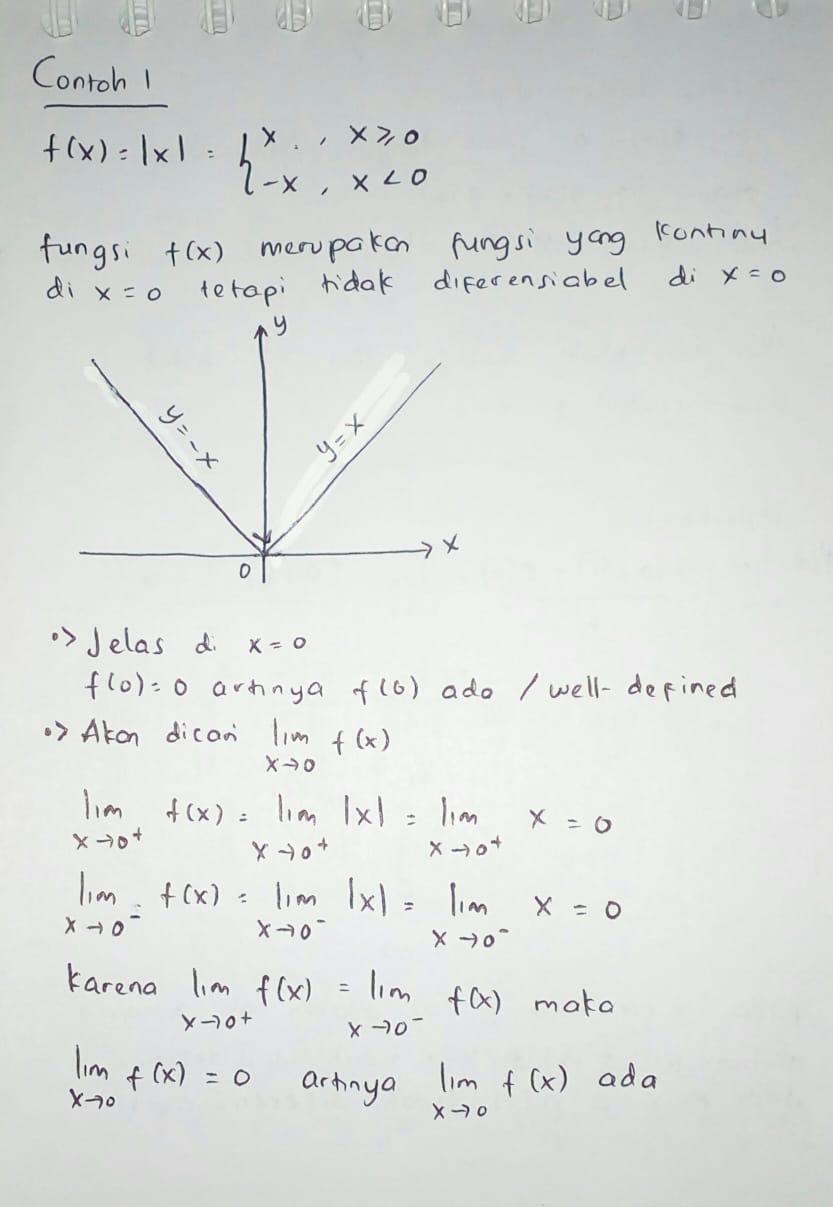 Contoh 1
f(x) = |x| = { x , x ≥ 0
-x , x < 0
fungsi f(x) merupakan fungsi yang kontinu
di x = 0 tetapi tidak diferensiabel di x = 0
y
y = -x
y = x
x
0
•> Jelas di x = 0
f(0) = 0 artinya f(0) ada / well-defined
•> Akan dicari lim f(x)
x→0
lim f(x) = lim |x| = lim x = 0
x→0⁺ x→0⁺ x→0⁺
lim f(x) = lim |x| = lim x = 0
x→0⁻ x→0⁻ x→0⁻
karena lim f(x) = lim f(x) maka
x→0⁺ x→0⁻
lim f(x) = 0 artinya lim f(x) ada
x→0 x→0